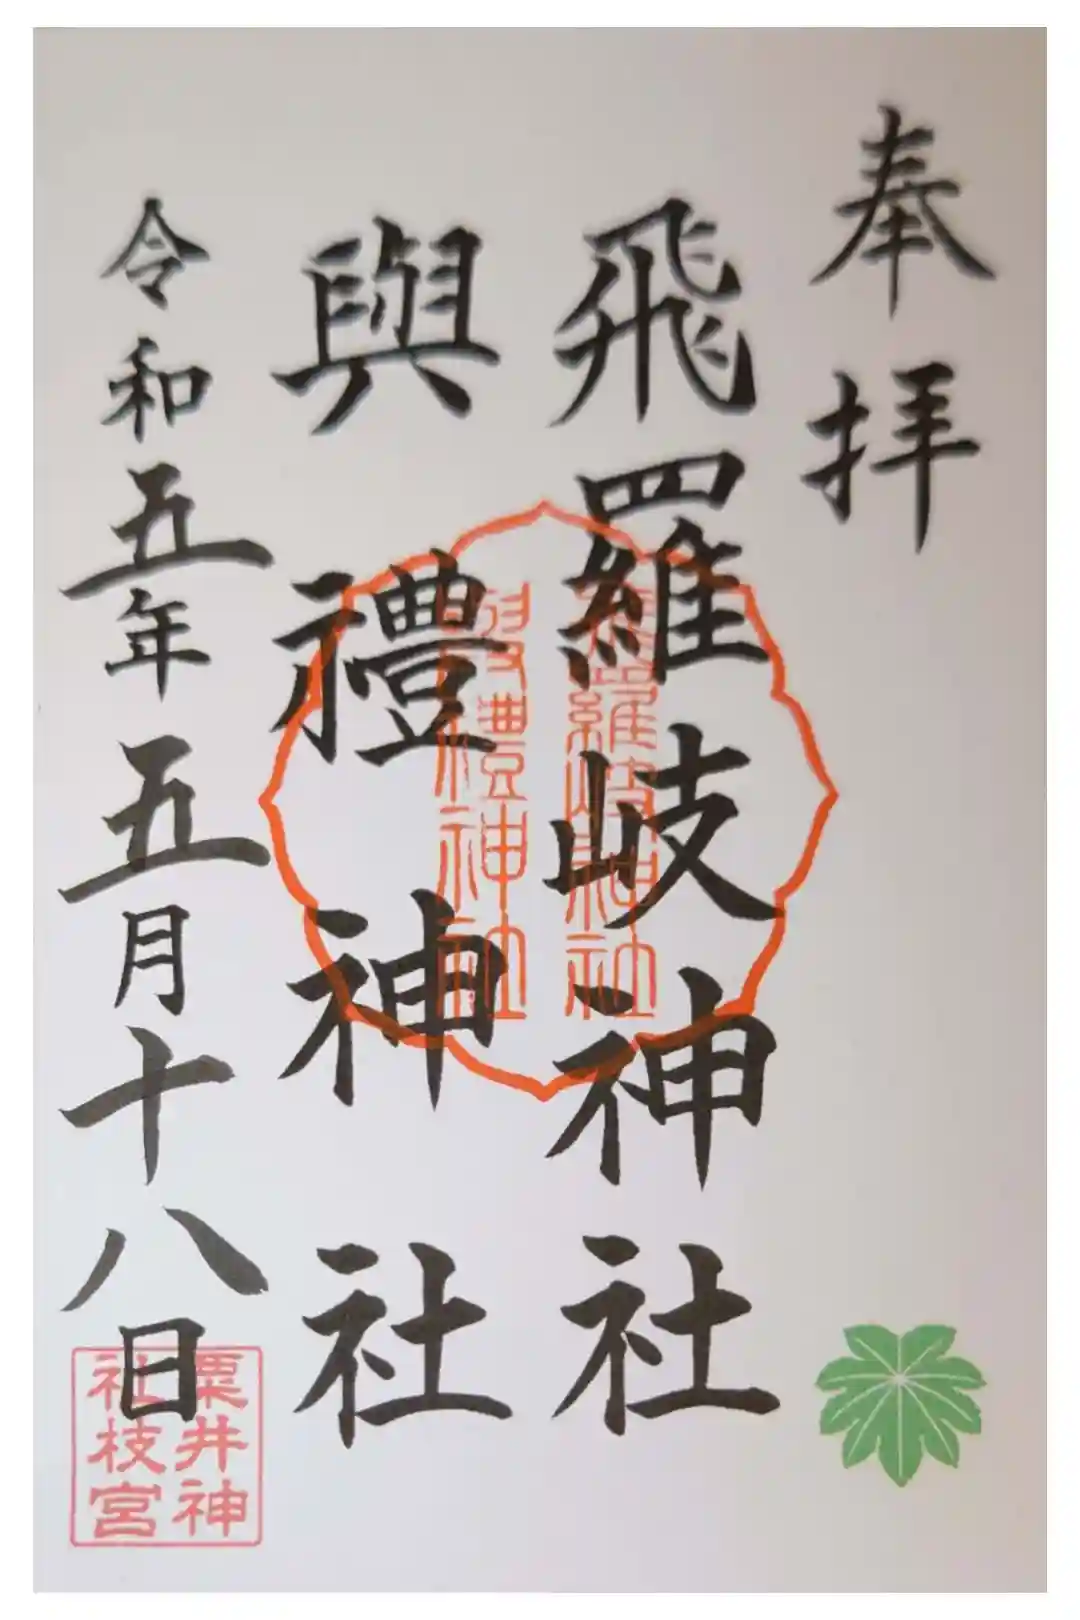 奉拝
飛羅岐神社
與禮神社
令和五年五月十八日
羅岐神社
禮神社
粟井神
社枝宮